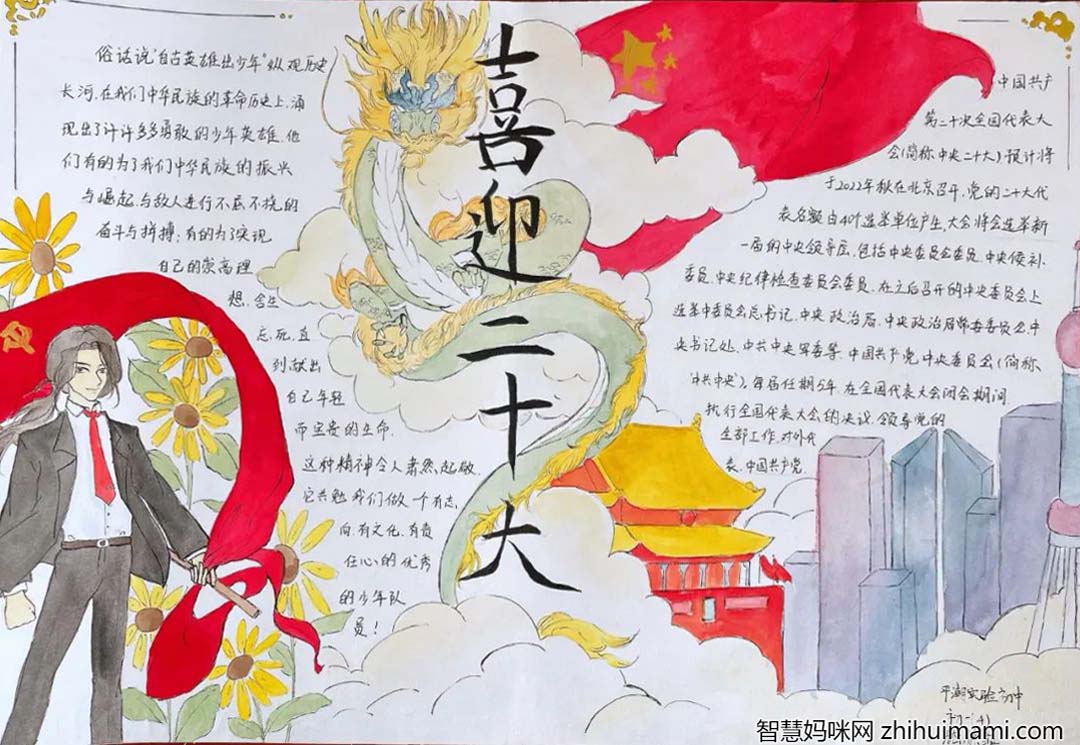 喜迎二十大
俗话说“自古英雄出少年”纵观历史
长河,在我们中华民族的革命历史上,涌
现出了许许多多勇敢的少年英雄,他
们有的为了我们中华民族的振兴
与崛起,与敌人进行不屈不挠的
奋斗与拼搏;有的为了实现
自己的崇高理
想,舍生
忘死,直
到献出
自己年轻
而宝贵的生命.
这种精神令人肃然起敬.
它共勉我们做一个有志,
向,有文化,有责
任心的优秀
的少年队
员!
中国共产
第二十次全国代表大
会(简称中央二十大)预计将
于2022年秋在北京召开,党的二十大代
表名额由40个选举单位产生,大会将会选举新
一届的中央领导层,包括中央委员会委员,中央候补.
委员,中央纪律检查委员会委员,在之后召开的中央委员会上
选举中委员会总书记,中央政治局,中央政治局常委委员会中
央书记处,中共中央军委等,中国共产党中央委员会(简称
‘中共中央’),每届任期5年,在全国代表大会闭会期间
执行全国代表大会的决议,领导党的
全部工作,对外代
表,中国共产党.
平湖实验初中
智慧妈咪网 zhihuimami.com